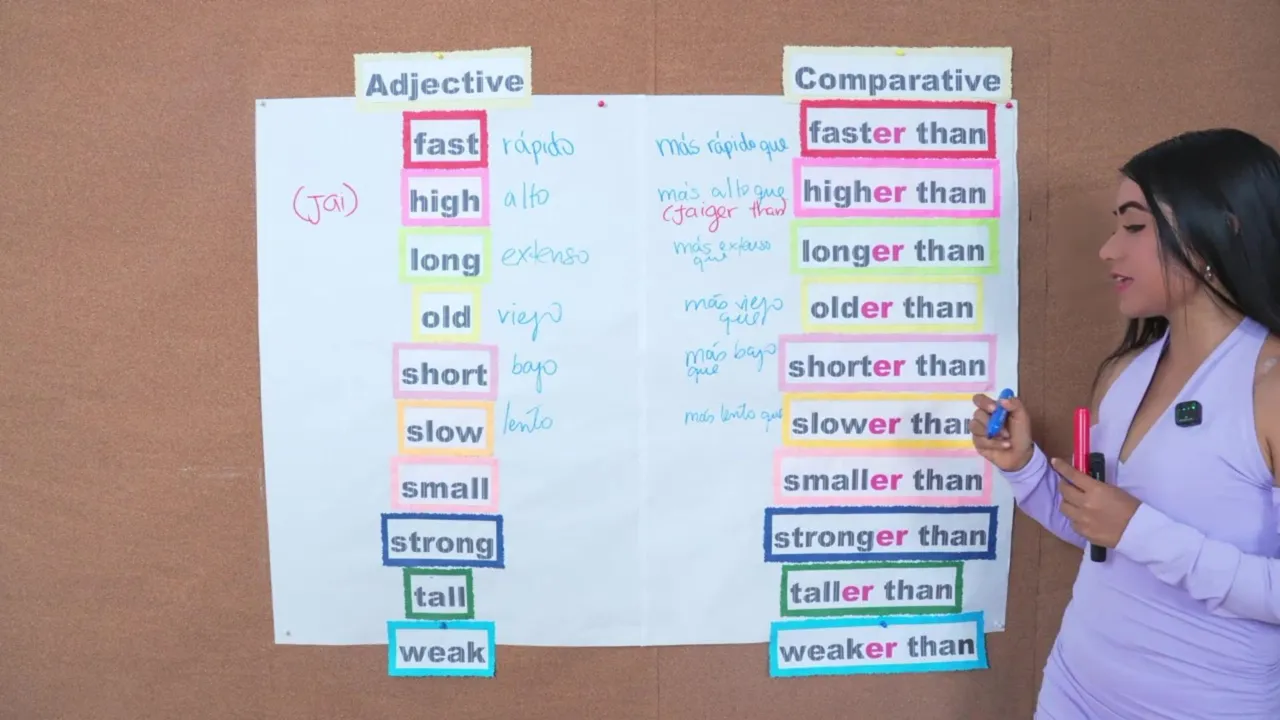 Adjective Comparative
fast rápido más rápido que faster than
(Jai) high alto más alto que higher than
(Jaiger than)
long extenso más extenso longer than
que
old viejo más viejo older than
que
short bajo más bajo shorter than
que
slow lento más lento que slower than
small smaller than
strong stronger than
tall taller than
weak weaker than